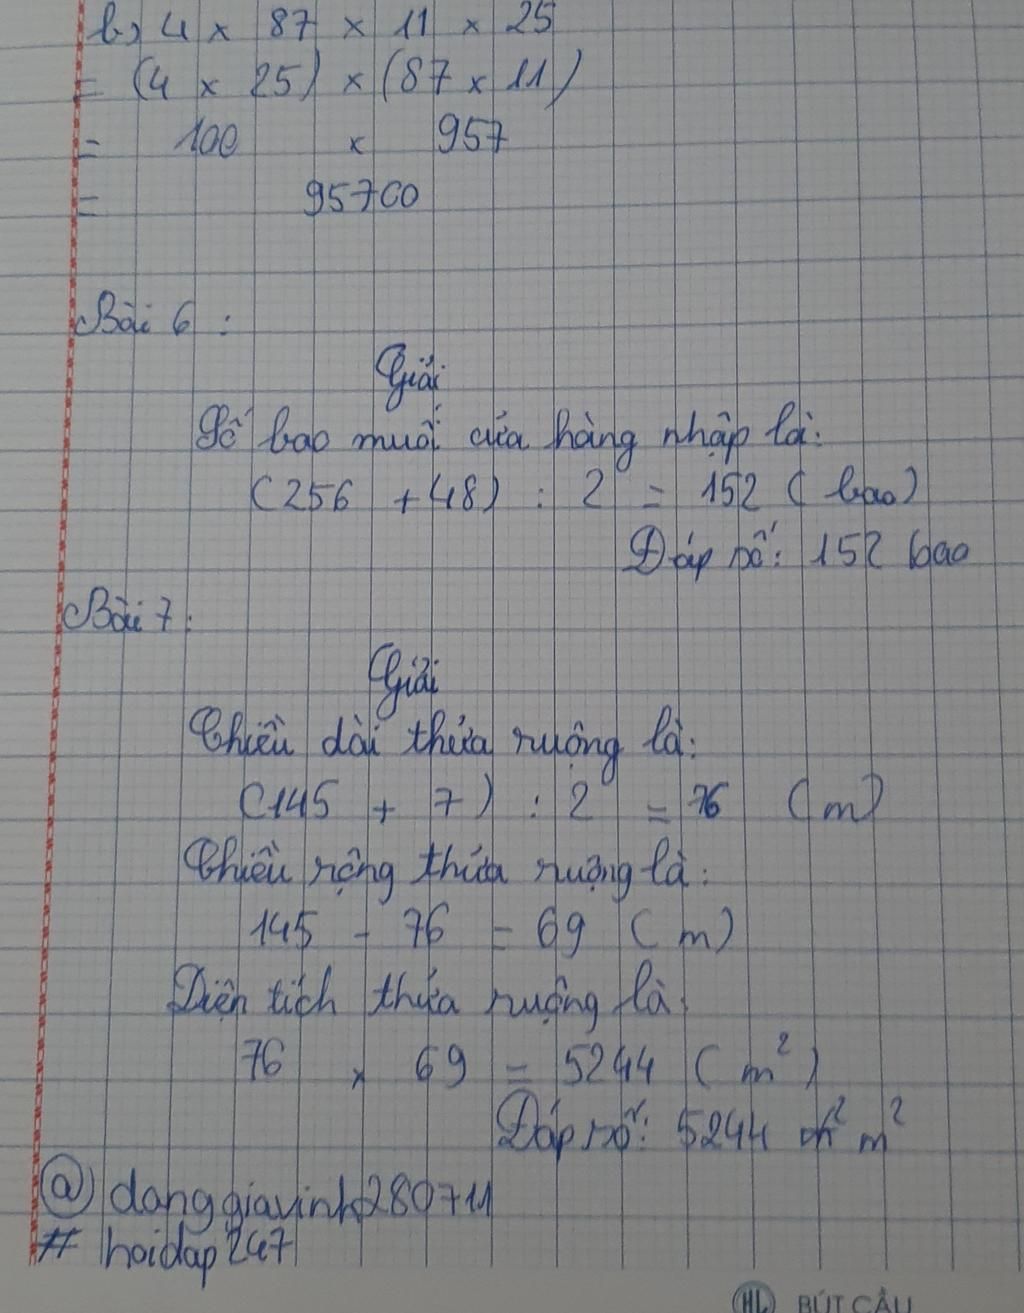 b) 4 x 87 x 11 x 25
= (4 x 25) x (87 x 11)
= 100 x 957
= 95700
Bài 6 :
Giải
Số bao muối cửa hàng nhập là:
(256 + 48) : 2 = 152 (bao)
Đáp số: 152 bao
Bài 7:
Giải
Chiều dài thửa ruộng là:
(145 + 7) : 2 = 76 (m)
Chiều rộng thửa ruộng là:
145 - 76 = 69 (m)
Diện tích thửa ruộng là
76 x 69 = 5244 (m²)
Đáp số: 5244 m²
@ danggiavinh280711
# hoidap247
HL BÚT CẦU